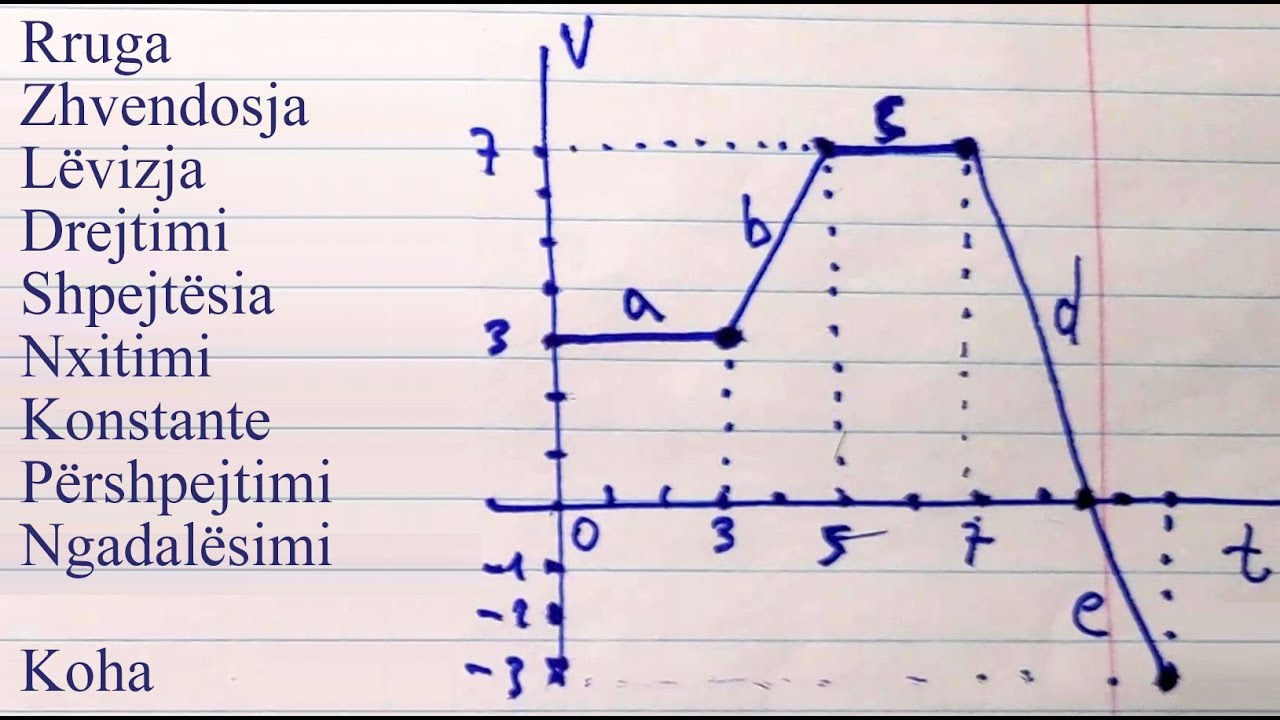 Rruga
Zhvendosja
Lëvizja
Drejtimi
Shpejtësia
Nxitimi
Konstante
Përshpejtimi
Ngadalësimi
Koha
V
7
b
a
3
d
0 3 5 7 t
-1
-2
e
-3